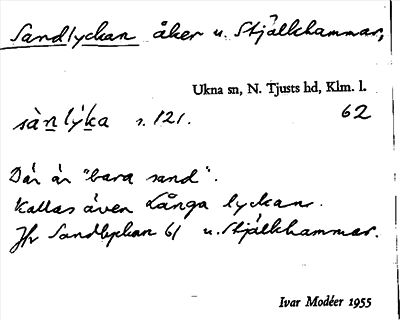 Sandlyckan åker u. Stjälkhammar,
Ukna sn, N. Tjusts hd, Klm. l.
sàn̲lýk̲a s. 121. 62
Där är "bara sand".
Kallas även Långa lyckan.
Jfr Sandlyckan 61 u. Stjälkhammar.
Ivar Modéer 1955